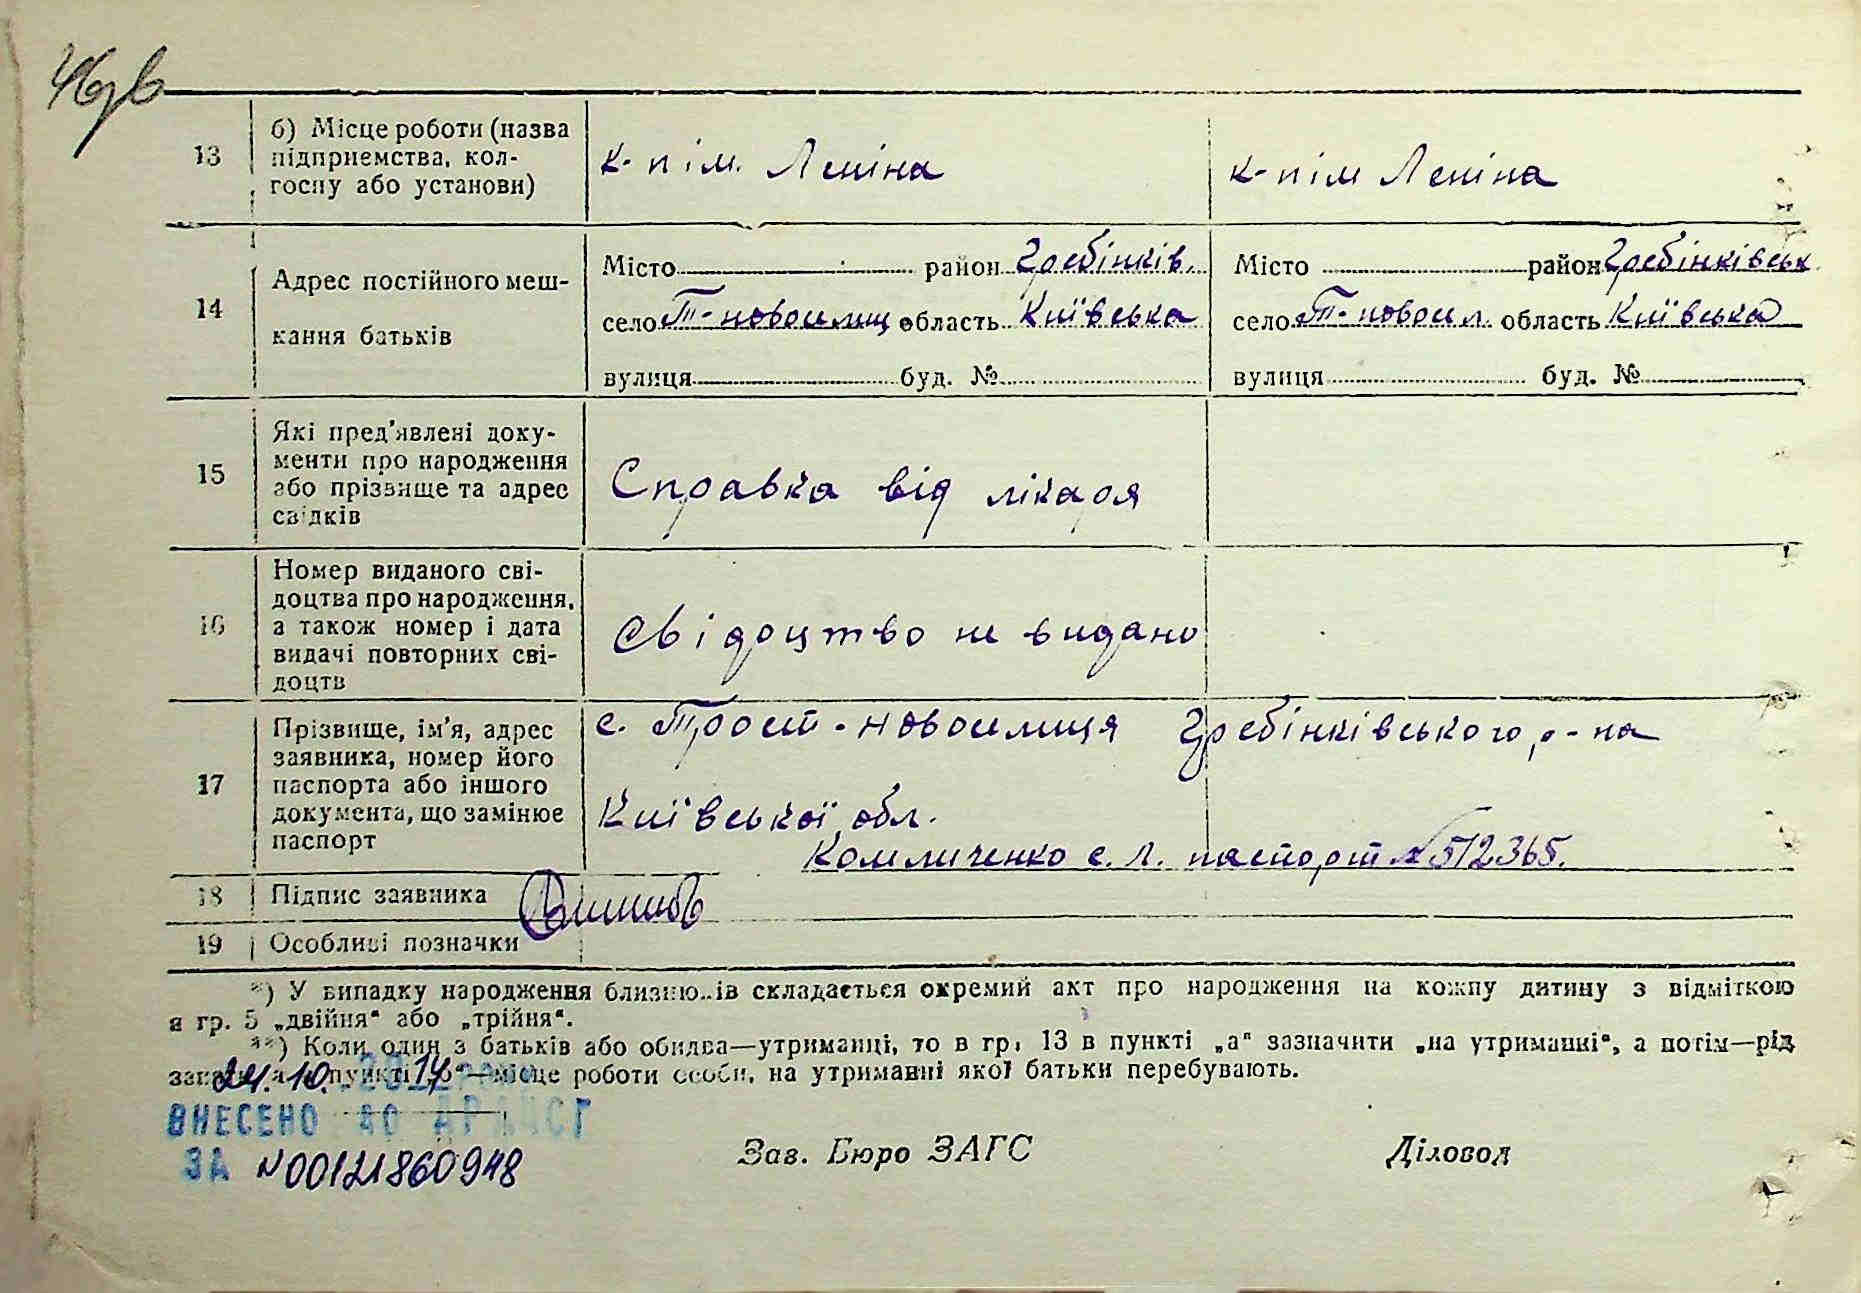 46зв
13
б) Місце роботи (назва
підприємства, кол-
госпу або установи)
к-п ім. Леніна
к-п ім Леніна
14
Адрес постійного меш-
кання батьків
Місто район Гребінків.
село Т-новосилиц область Київська
вулиця буд. №
Місто район Гребінківськ
село Т-новосил. область Київська
вулиця буд. №
15
Які пред'явлені доку-
менти про народження
або прізвище та адрес
свідків
Справка від лікаря
16
Номер виданого сві-
доцтва про народження,
а також номер і дата
видачі повторних сві-
доцтв
Свідоцтво не видано
17
Прізвище, ім'я, адрес
заявника, номер його
паспорта або іншого
документа, що замінює
паспорт
с. Трост-новосилиця Гребінківського р-на
Київської обл.
с. Л. паспорт № 512365.
18
Підпис заявника
19
Особливі позначки
*) У випадку народження близнюків складається окремий акт про народження на кожну дитину з відміткою
в гр. 5 „двійня" або „трійня".
**) Коли один з батьків або обидва—утриманці, то в гр. 13 в пункті „а" зазначити „на утриманні", а потім—рід
пункті місце роботи особи, на утриманні якої батьки перебувають.
24.10.
ВНЕСЕНО ДО ДРАЦСГ
ЗА №00121860948
Зав. Бюро ЗАГС
Діловод